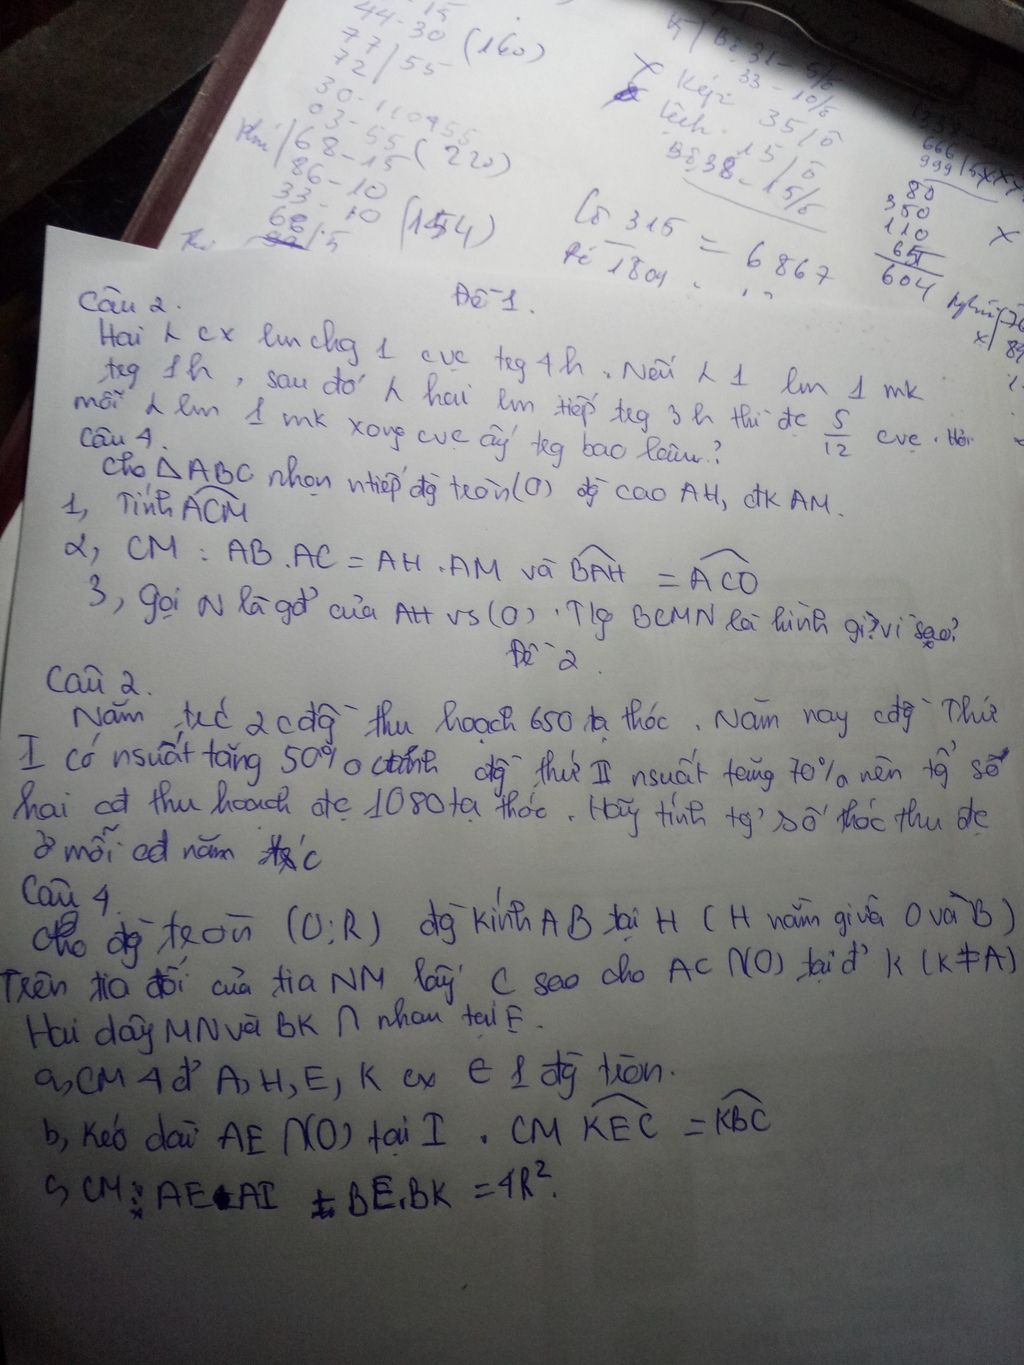 44-30
77 (160)
72/55
30-110
03-55
68-15 (220)
86-10
33-10
68/5 (154)
33-10/5
Kép 35/5
Lệch 15/5
Bộ 38-15/5
Cô 315 = 6867
Đề 1804
666
999
80
350
110
604
X
Đề 1.
Câu 2.
Hai L cx lm chg 1 cvc teg 4h. Nếu L 1 lm 1 mk
teg 1h, sau đó L hai lm tiếp teg 3h thì đc 5/12 cvc. Hỏi
mỗi L lm 1 mk xong cvc ấy teg bao lâu?
Câu 4.
Cho △ABC nhọn ntiếp đg tròn (O) đg cao AH, đk AM.
1, Tính ACM
2, CM: AB.AC = AH.AM và BAH = ACO
3, Gọi N là gđ' của AH vs (O). T/g BCMN là hình gì? vì sao?
Đề 2.
Câu 2.
Năm teć 2 cđg thu hoạch 650 tạ thóc. Năm nay cđg Thứ
I có nsuất tăng 50% đg thứ II nsuất tăng 70% nên tg' số
hai cđ thu hoạch đc 1080 tạ thóc. Hãy tính tg' số thóc thu đc
ở mỗi cđ năm
Câu 4.
Cho đg tròn (O;R) đg kính AB tại H (H nằm giữa O và B)
Trên tia đối của tia NM lấy C sao cho AC ∩(O) tại đ' K (K≠A)
Hai dây MN và BK ∩ nhau tại E.
a, CM 4 đ' A, H, E, K cx ∈ 1 đg tròn.
b, Kéo dài AE ∩(O) tại I. CM KEC = KBC
c, CM: AE.AI + BE.BK = 4R².